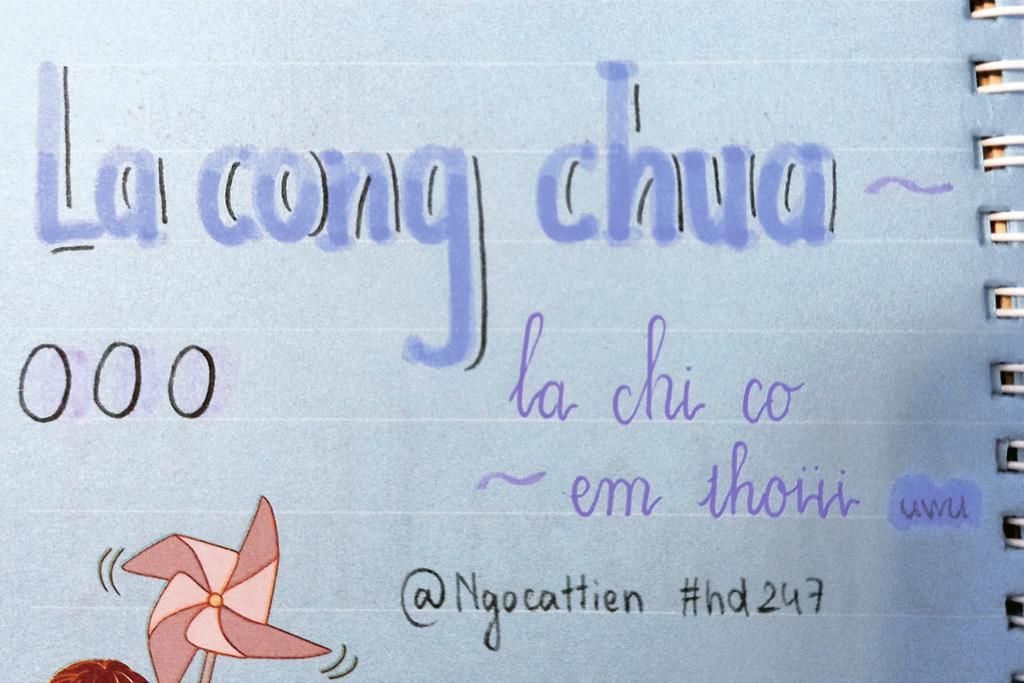 La cong chua ~
000
la chi co
~ em thoiii uwu
@Ngocattien #hd247